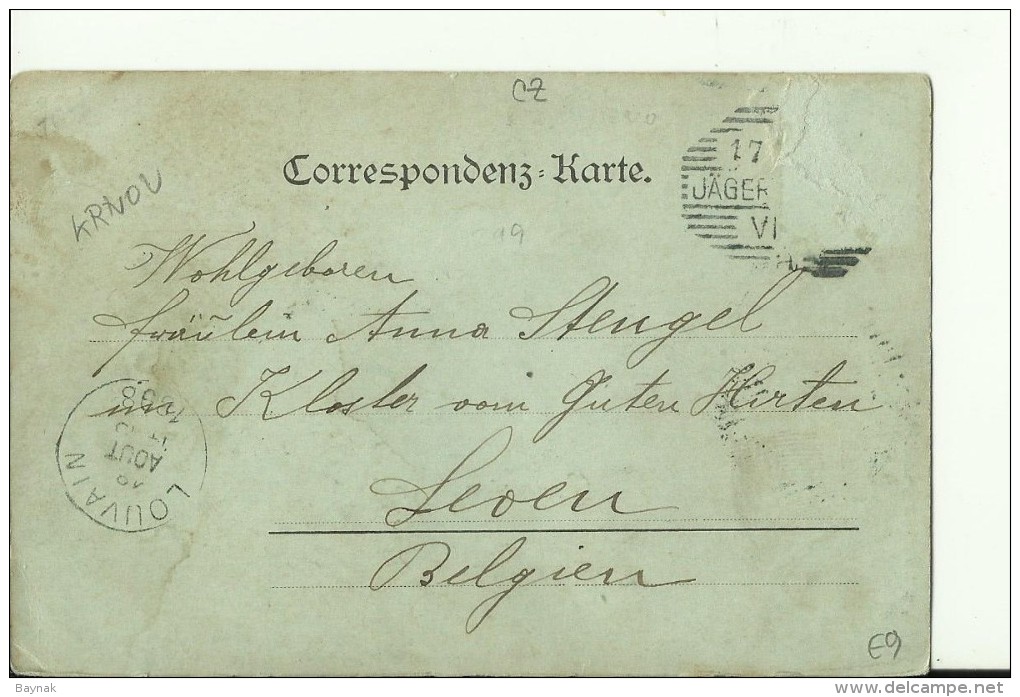 CZ
Correspondenz-Karte.
17
JÄGER
VI
KRNOV
19
Wohlgeboren
Fräulein Anna Stengel
im Kloster vom Guten Hirten
Leven
Belgien
LOUVAIN
AOUT
E9
Baynak
www.delcampe.net